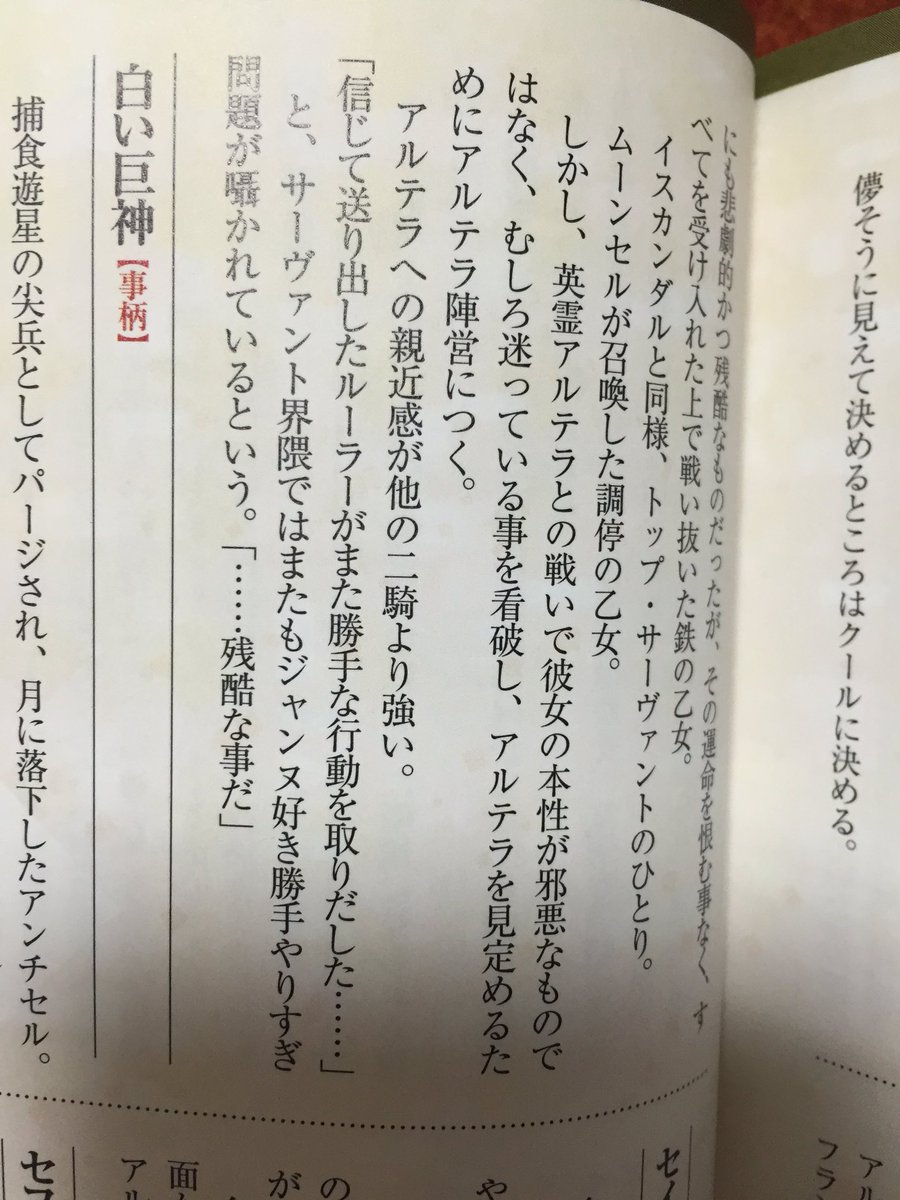 儚そうに見えて決めるところはクールに決める。
にも悲劇的かつ残酷なものだったが、その運命を恨む事なく、す
べてを受け入れた上で戦い抜いた鉄の乙女。
イスカンダルと同様、トップ・サーヴァントのひとり。
ムーンセルが召喚した調停の乙女。
しかし、英霊アルテラとの戦いで彼女の本性が邪悪なもので
はなく、むしろ迷っている事を看破し、アルテラを見定めるた
めにアルテラ陣営につく。
アルテラへの親近感が他の二騎より強い。
「信じて送り出したルーラーがまた勝手な行動を取りだした……」
と、サーヴァント界隈ではまたもジャンヌ好き勝手やりすぎ
問題が囁かれているという。「……残酷な事だ」
白い巨神【事柄】
捕食遊星の尖兵としてパージされ、月に落下したアンチセル。
アル
フラ
セイ
や
の
が
面
アル
セフ